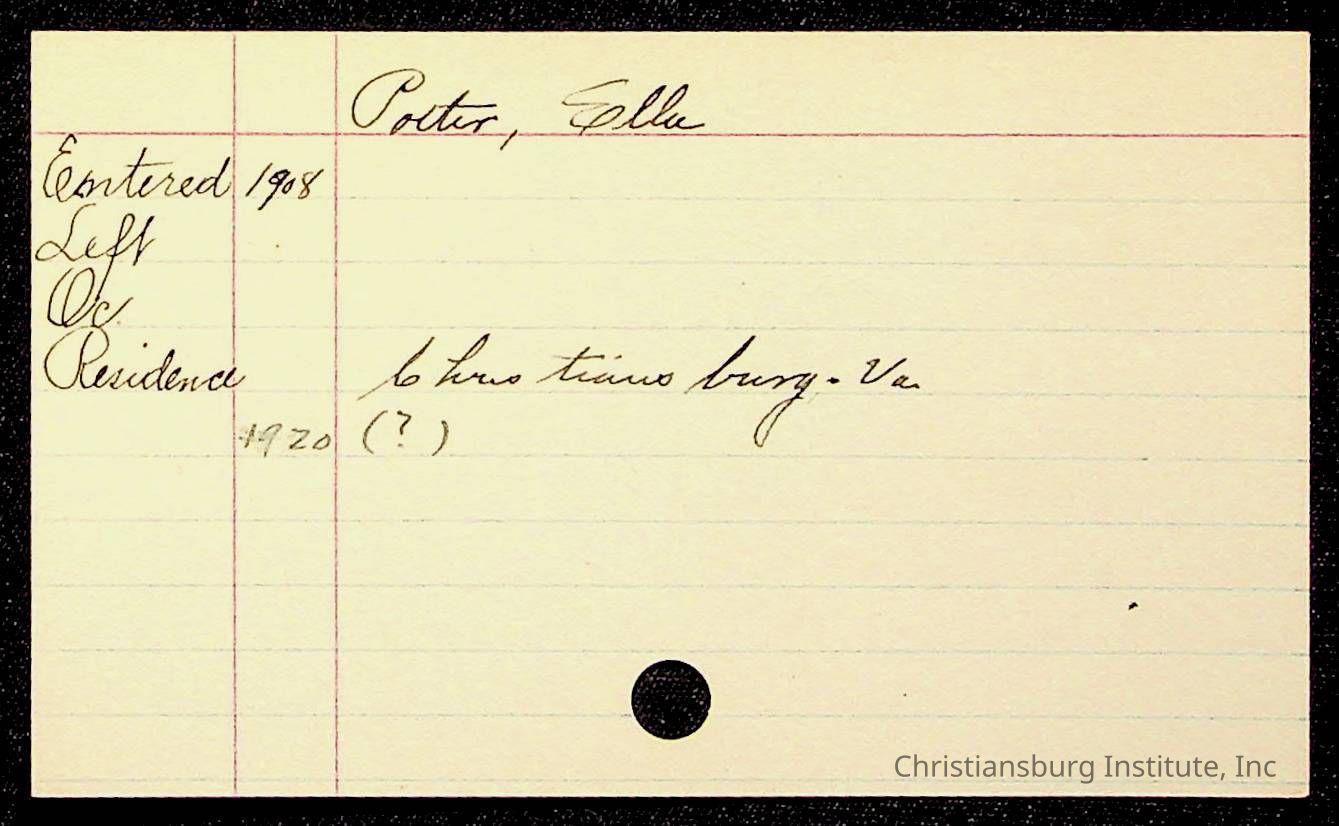 Potter, Ella
Entered 1908
Left
Oc
Residence Christiansburg. Va.
1920 (?)
Christiansburg Institute, Inc